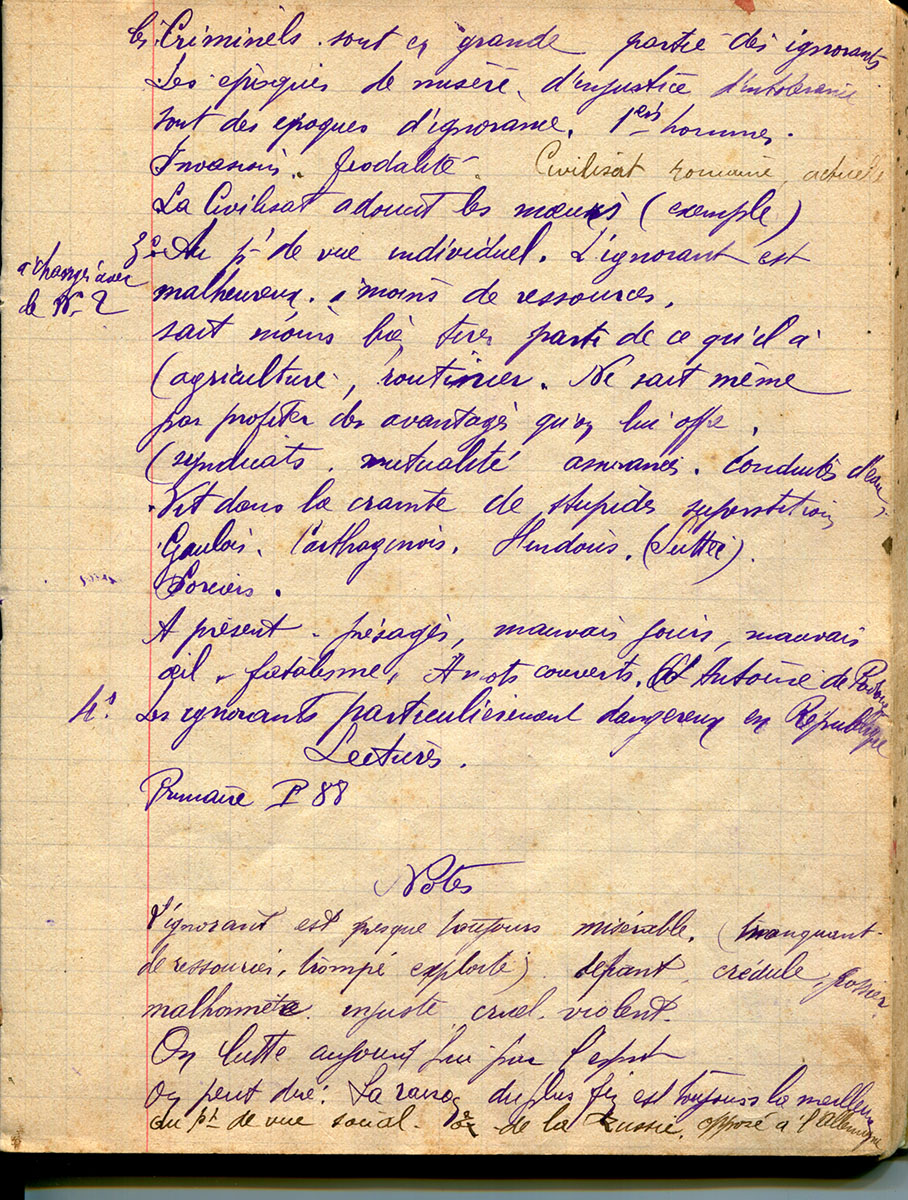 les Criminels sont en grande partie des ignorants
Les époques de misère, d'injustice d'intolérance
sont des époques d'ignorance. 1ers hommes.
Invasions. féodalité. Civilisat romaine, actuelle
La Civilisat adoucit les mœurs (exemple)
3º Au pt de vue individuel. L'ignorant est
à changer avec
le Nº 2
malheureux. moins de ressources.
sait moins bien tirer parti de ce qu'il a
(agriculture, routinier. Ne sait même
pas profiter des avantages qu'on lui offre.
(syndicats. mutualité assurances. Conduites d'eau
Vit dans la crainte de stupides superstitions
Gaulois. Carthaginois. Hindous. (Suttee).
Sorciers.
A présent. présages, mauvais jours, mauvais
œil. fatalisme, A mots couverts. St Antoine de Padoue
4º Les ignorants particulièrement dangereux en République
Lectures.
Primaire P 88
Notes
L'ignorant est presque toujours misérable. (manquant
de ressources, trompé exploité) défiant, crédule, grossier
malhonnête. injuste cruel. violent.
On lutte aujourd'hui par l'esprit
On peut dire: La raison du plus fin est toujours la meilleure
au pt de vue social. de la Russie, opposé à l'Allemagne